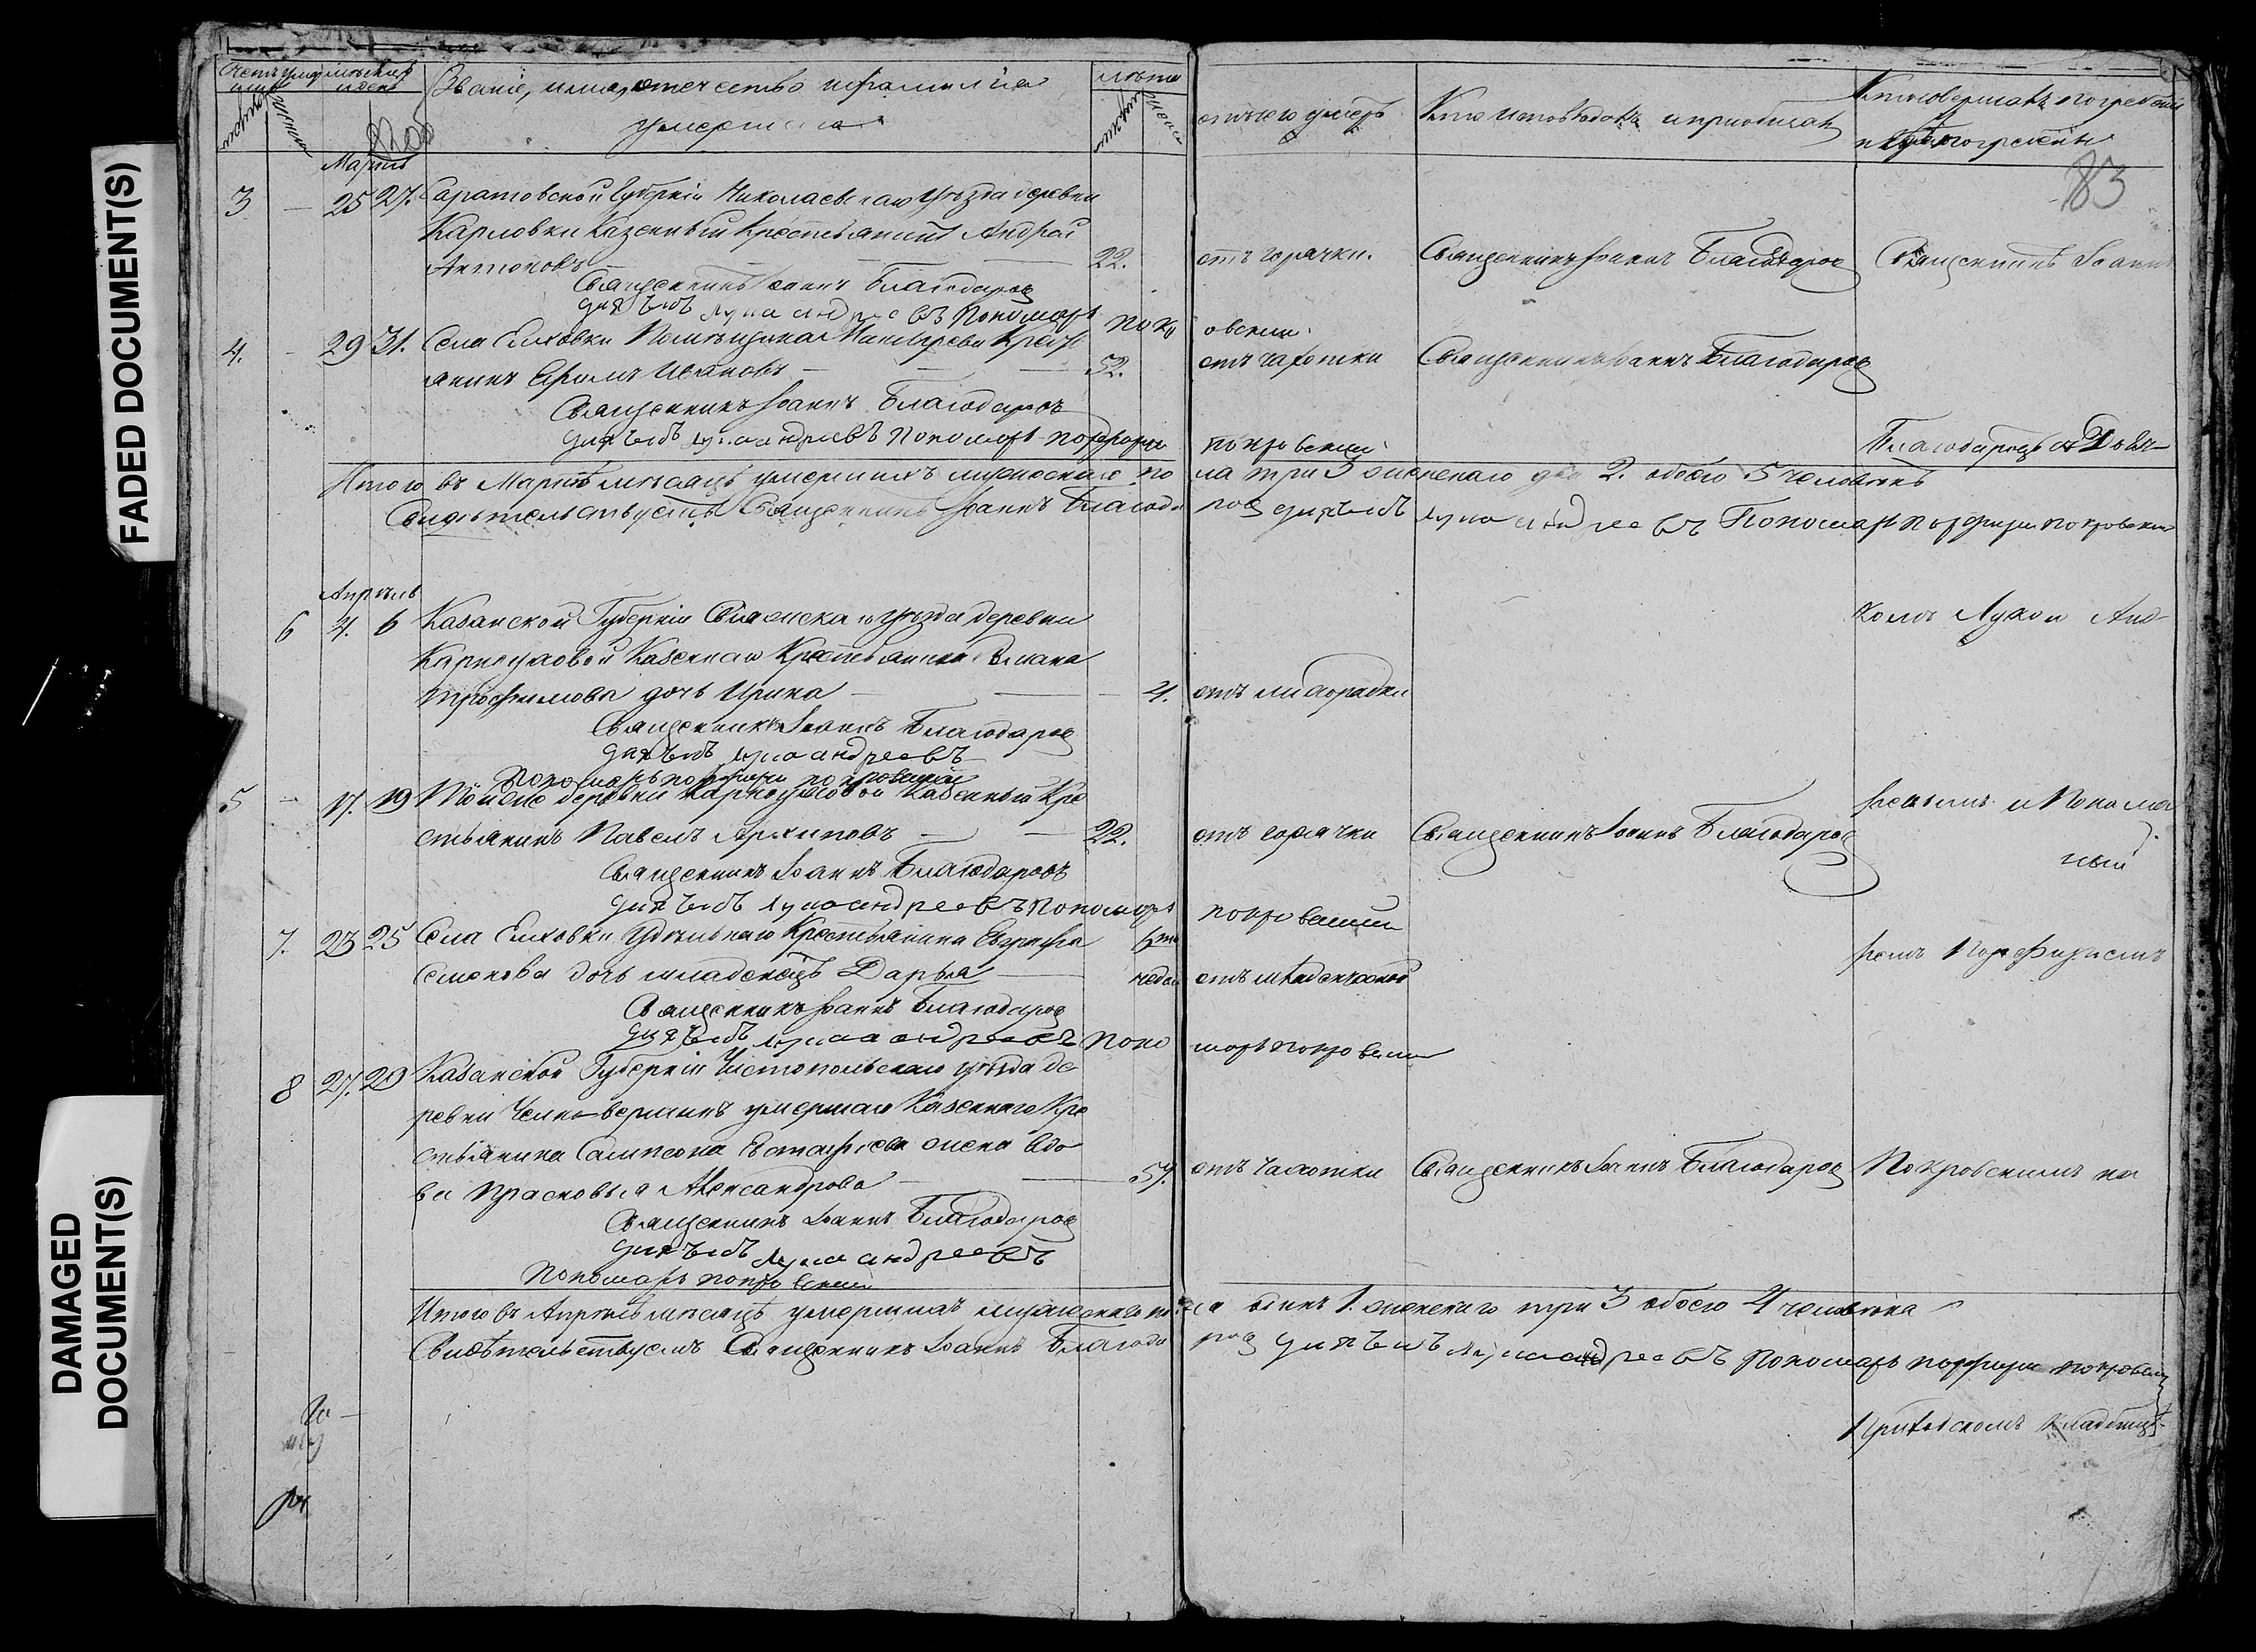 FADED DOCUMENT(S)
DAMAGED
DOCUMENT(S)
Званіе, имя, отечество и фамилія
умершихъ
лѣта
отъ чего умеръ
Кто исповѣдовалъ и приобщалъ
Кто совершалъ погребеніе
и гдѣ погребены
83
Мартъ
3 — 25 27. Саратовской Губерніи Николаевскаго уѣзда деревни
Карловки Казенный Крестьянинъ Андрей
Антоновъ — 22. отъ горячки. Священникъ Іоаннъ Благодаровъ Священникъ Іоаннъ
Священникъ Іоаннъ Благодаровъ
дьячекъ Лука андреевъ Пономарь покровскій
4. — 29 31. Села Елховки Помѣщика Кресть
янинъ Ефимъ Ивановъ — 52. отъ чахотки Священникъ Іоаннъ Благодаровъ
Священникъ Іоаннъ Благодаровъ
дьячекъ лука андреевъ Пономарь порфирій покровскій
Благодаровъ съ Дьяч
Итого въ Мартѣ мѣсяцѣ умершихъ мужескаго пола три 3 женскаго два 2. обоего 5 человѣкъ
Свидѣтельствуетъ Священникъ Іоаннъ Благодаровъ дьячекъ лука андреевъ Пономарь порфирій покровскій
Апрѣль
6 4. 6 Казанской Губерніи Спасскаго уѣзда деревни
комъ Лукою Анд
Карноуховой Казеннаго Крестьянина
Трофимова дочь Ирина — 4. отъ лихорадки
Священникъ Іоаннъ Благодаровъ
дьячекъ лука андреевъ
Пономарь порфирій покровскій
5 — 17. 19 Той же деревни Карноуховой Казенный Кре
реевымъ и Понома
стьянинъ Павелъ Архиповъ — 22. отъ горячки Священникъ Іоаннъ Благодаровъ
Священникъ Іоаннъ Благодаровъ
дьячекъ лука андреевъ Пономарь покровскій
7. 23 25 Села Елховки Удѣльнаго Крестьянина Евграфа
ремъ Порфиріемъ
Семенова дочь младенецъ Дарья — недѣль отъ младенческой
Священникъ Іоаннъ Благодаровъ
дьячекъ лука андреевъ Пономарь покровскій
8 27. 29 Казанской Губерніи Чистопольскаго уѣзда де
ревни Челно-вершинъ умершаго Казеннаго Кре
стьянина Сампсона Евстафіева жена вдо
ва Прасковья Александрова — 57. отъ чахотки Священникъ Іоаннъ Благодаровъ Покровскимъ на
Священникъ Іоаннъ Благодаровъ
дьячекъ Лука андреевъ
Пономарь покровскій
Итого въ Апрѣлѣ мѣсяцѣ умершихъ мужескаго пола одинъ 1. женскаго три 3 обоего 4 человѣка
Свидѣтельствуемъ Священникъ Іоаннъ Благодаровъ дьячекъ Лука андреевъ Пономарь порфирій покровскій
Приходскомъ кладбищѣ.